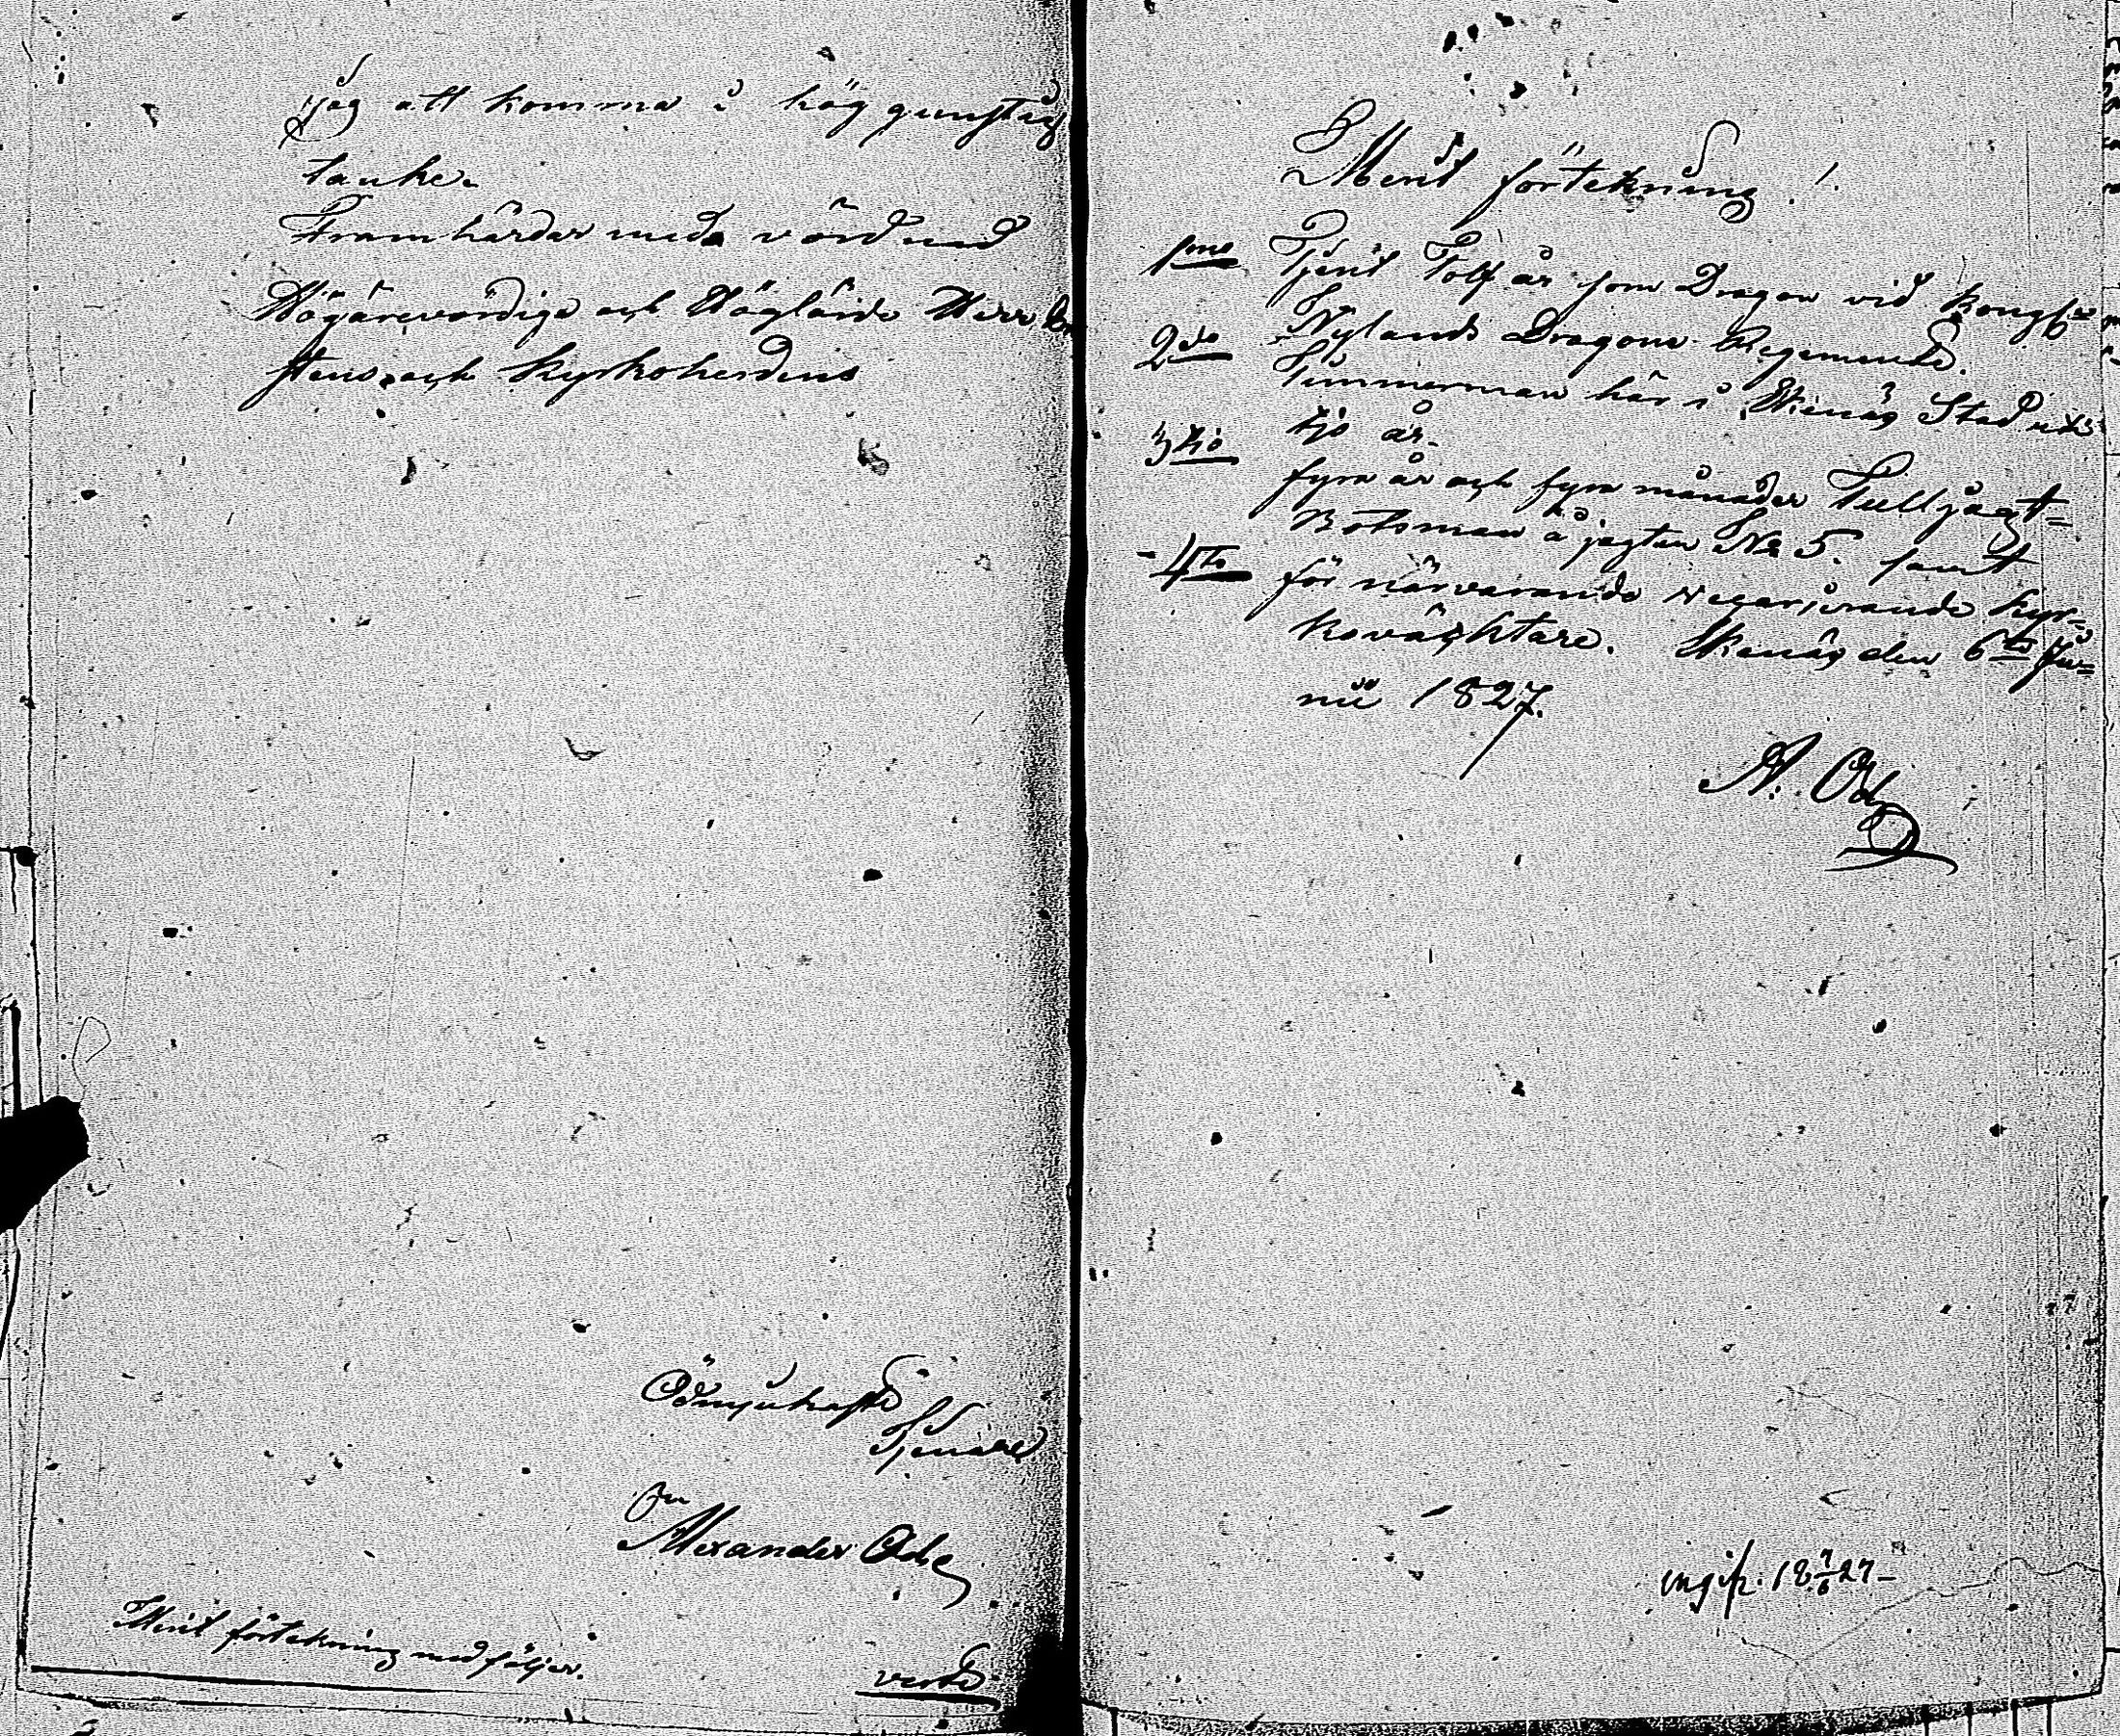 jag att komma i hög gunstig
tanke.
Framhärdar med vördnad
Högärevördige och Höglärde Herr
stens och Kyrkoherdens
Ödmjukaste
Tjenare
Alexander Ode
Merit förtekning medföljer.
verte
Merit förtekning!
1mo Tjent Tolf år som Dragon vid Kongl.
Nylands Dragone Regemente.
2do Timmerman här i Ekenäs Stad uti
tjo år.
3tio fyra år och fyra månader Tulljagt-
Botsman å jagten No 5. samt
4to för närvarande vicarierande Kyr-
koväcktare. Ekenäs den 6te Ju-
nii 1827.
A. Od
ingifv. 18 7/6 27